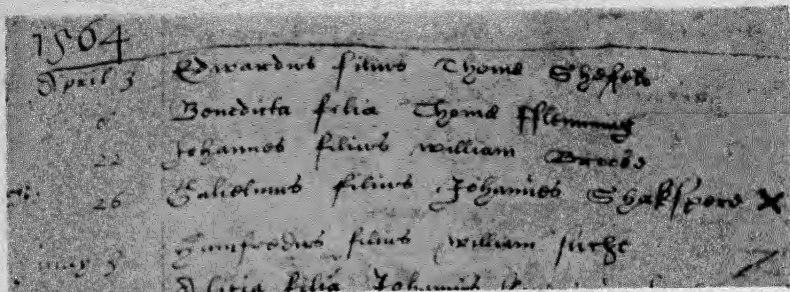 1564
April 3 Edwardus filius Thome Shefeld
6 Benedicta filia Thome fflemming
22 Johannes filius william Brooks
26 Gulielmus filius Johannes Shakspere X
may 3 humfredus filius william
Alicia filia Johannis